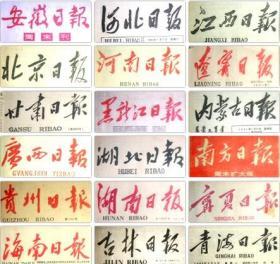 安徽日報
周末刊
河北日报
HEBEI RIBAO
江西日报
JIANGXI RIBAO
北京日报
河南日报
HENAN RIBAO
遼寧日报
LIAONING RIBAO
甘肃日報
GANSU RIBAO
黑龙江日報
内蒙古日报
廣西日報
GVANGJSIH YIZBAO
湖北日報
HUBEI RIBAO
南方日报
周末扩大版
貴州日报
GUIZHOU RIBAO
湖南日报
HUNAN RIBAO
宁夏日报
NINGXIA RIBAO
海南日报
吉林日报
JILIN RIBAO
青海日報
QINGHAI RIBAO